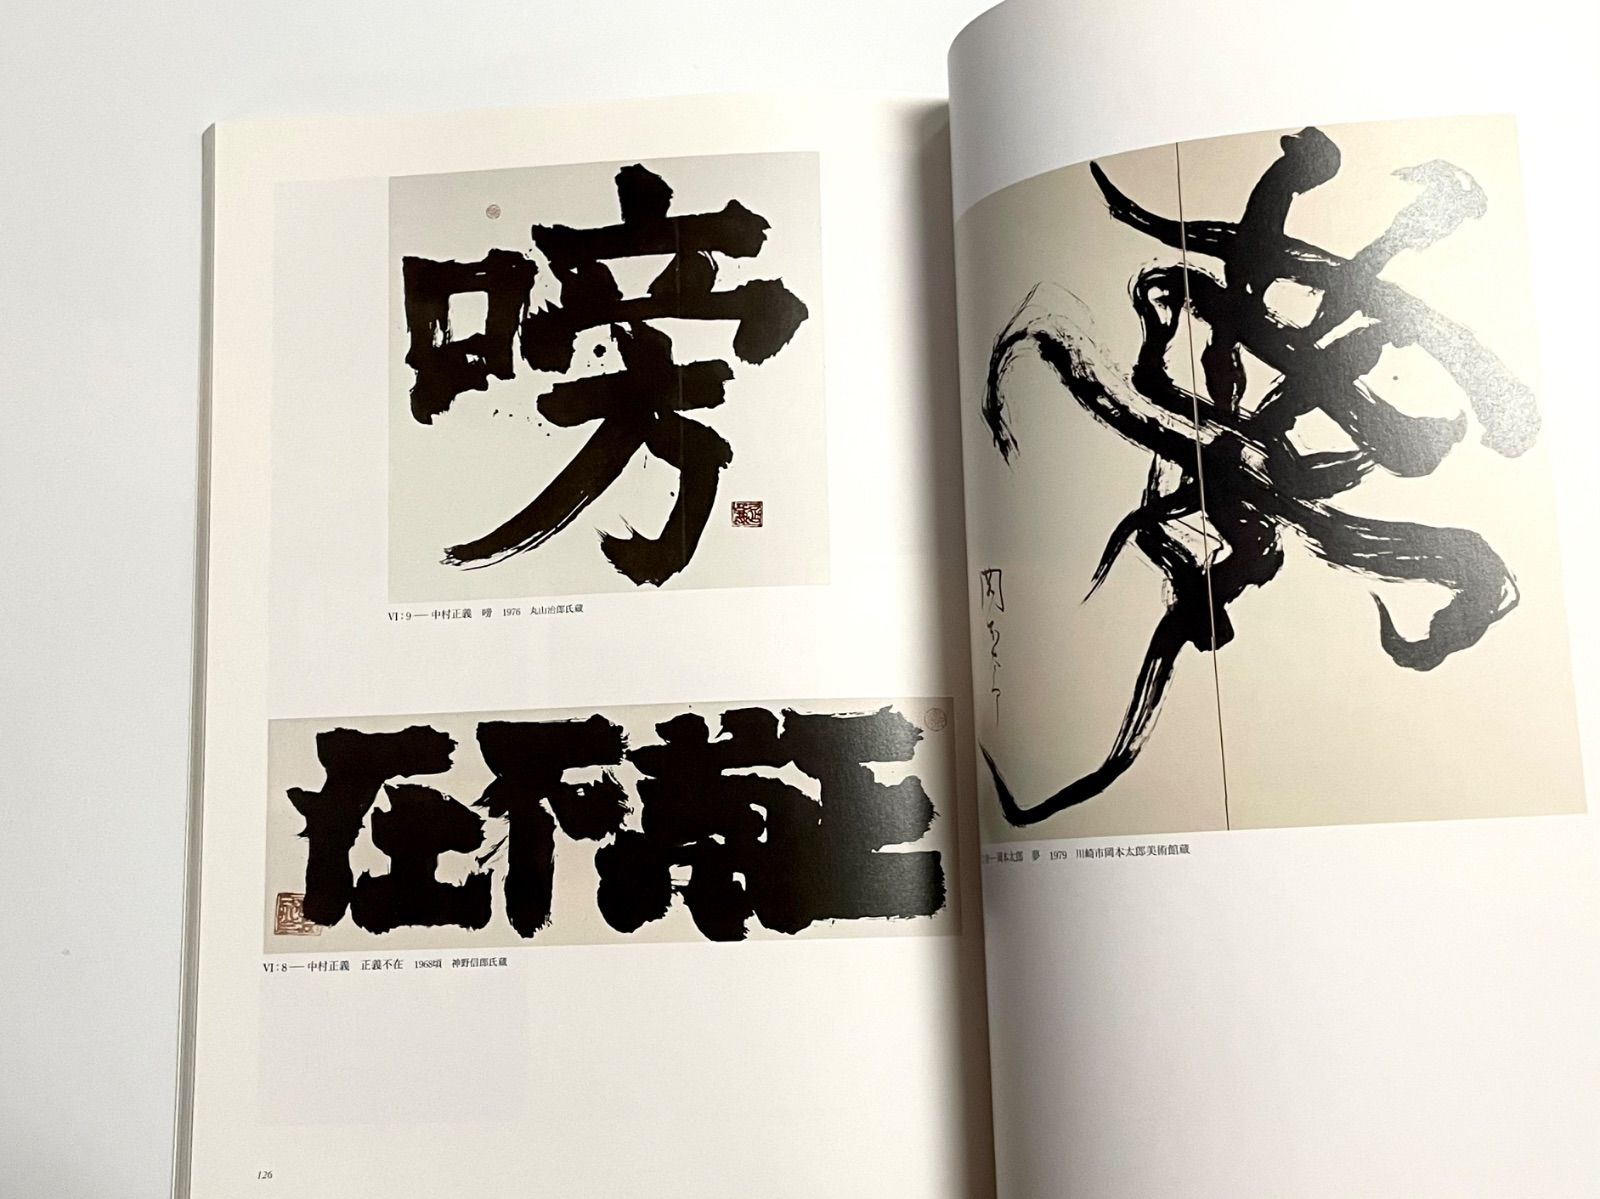 嗙
VI：9 — 中村正義　嗙　1976　丸山治郎氏蔵
在不義正
VI：8 — 中村正義　正義不在　1968頃　神野信郎氏蔵
126
夢
岡本太郎　夢　1979　川崎市岡本太郎美術館蔵